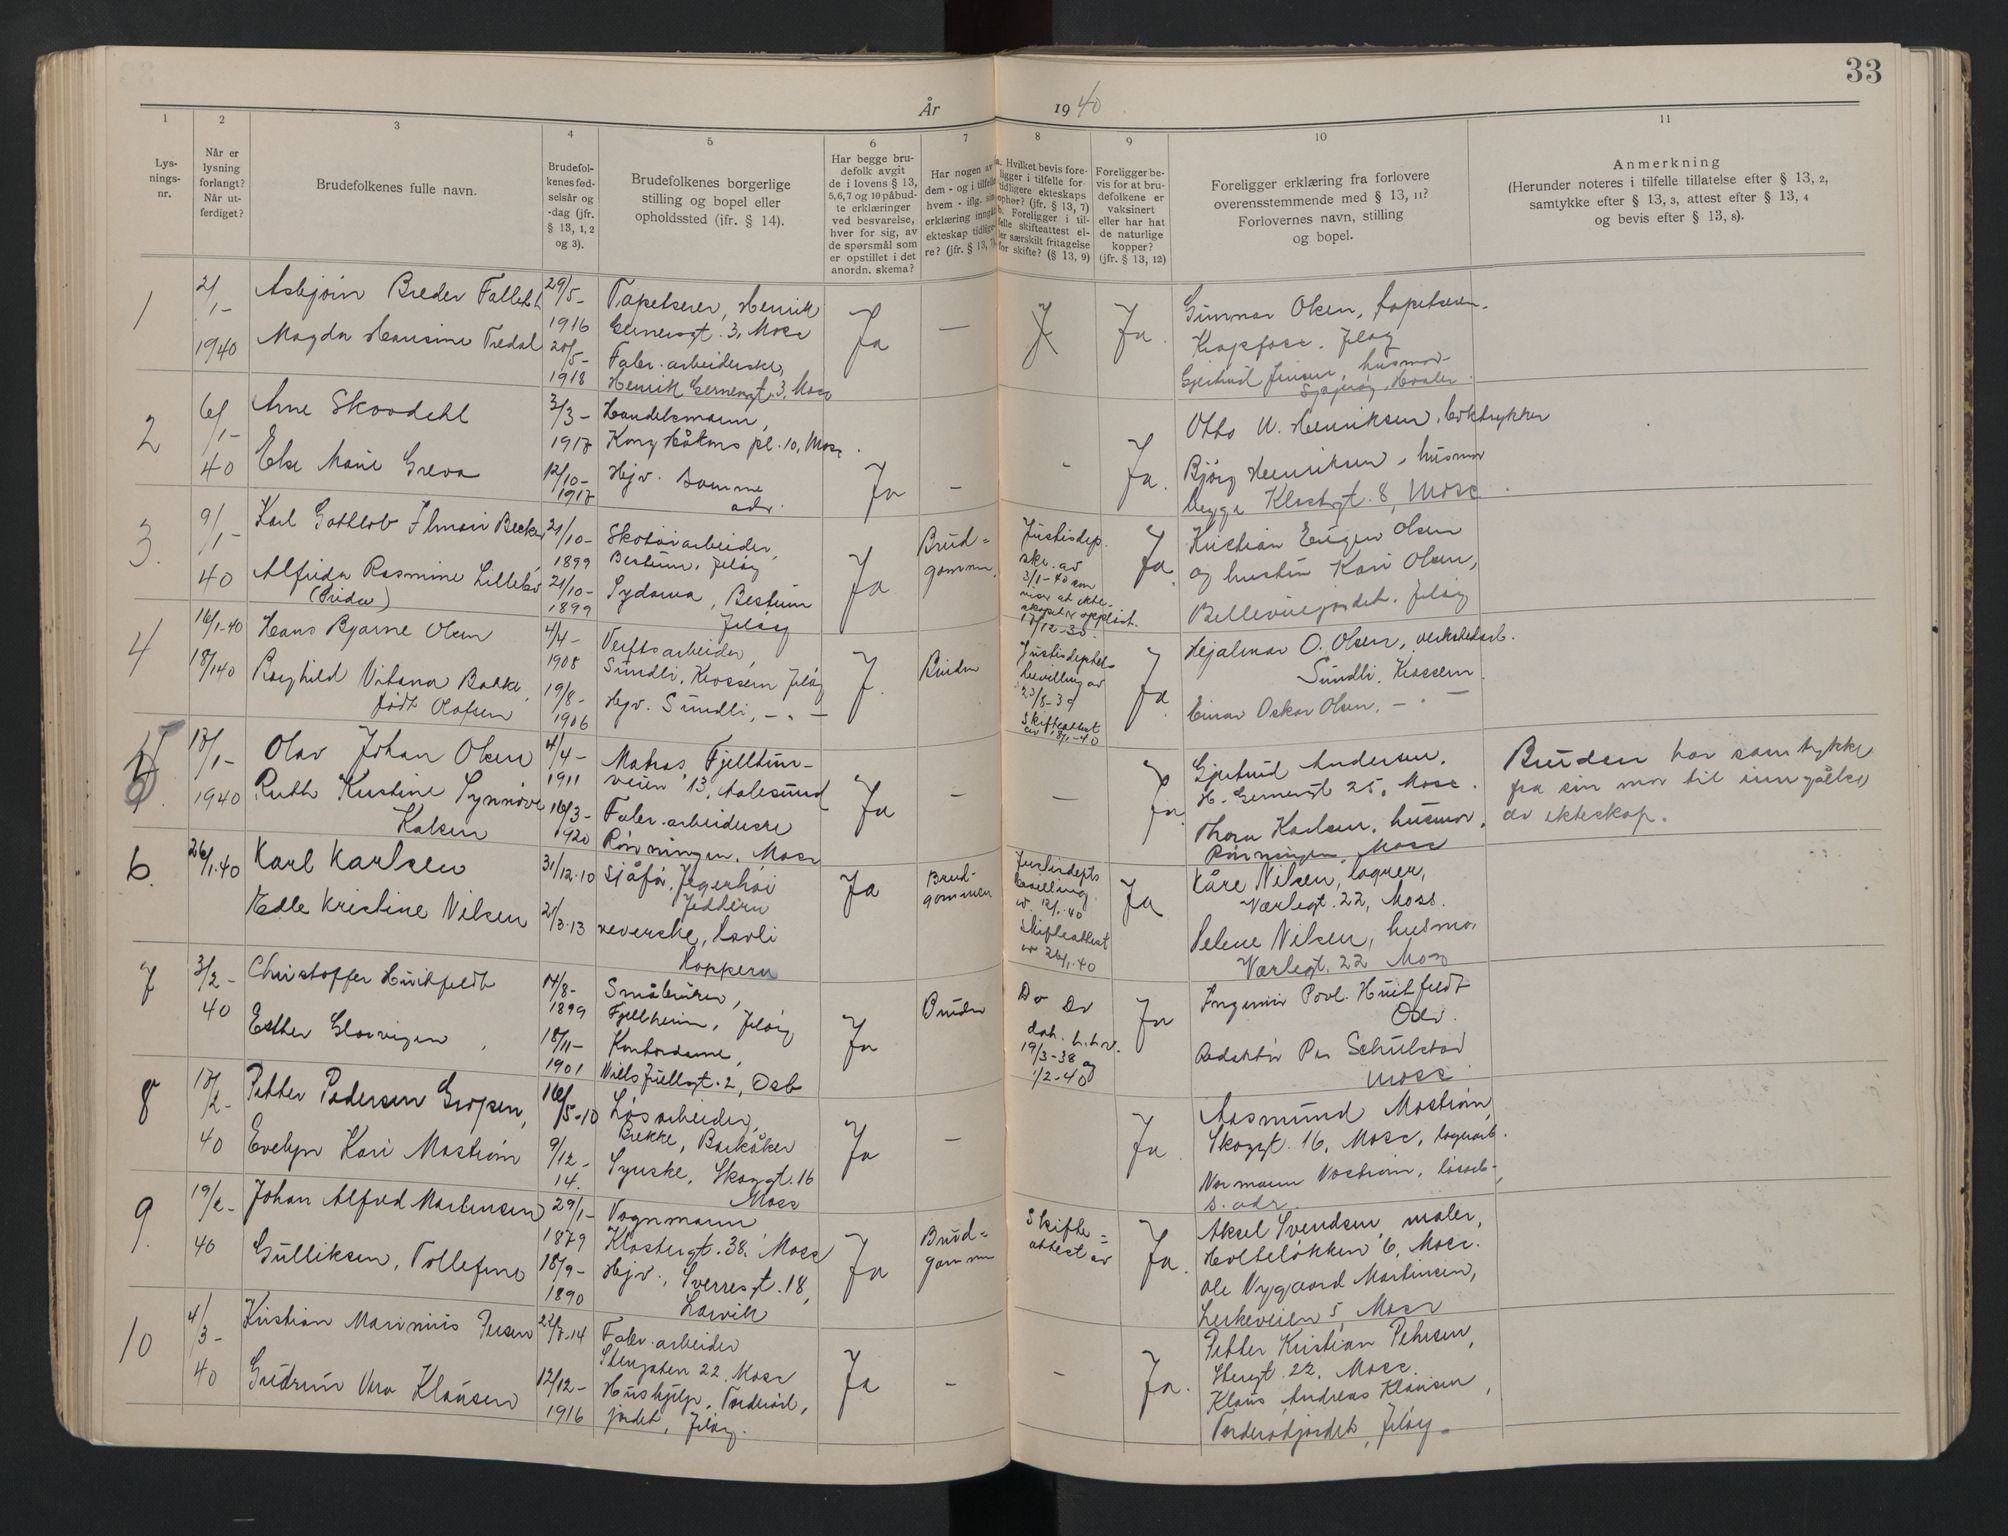 33
År 1940.
1 2 3 4 5 6 7 8 9 10 11
Lys-
nings-
nr.
Når er
lysning
forlangt?
Når ut-
ferdiget?
Brudefolkenes fulle navn.
Brudefol-
kenes fød-
selsår og
-dag (jfr.
§ 13, 1, 2
og 3).
Brudefolkenes borgerlige
stilling og bopel eller
opholdssted (ifr. § 14).
Har begge bru-
defolk avgit
de i lovens § 13,
5,6,7 og 10 påbud-
te erklæringer
ved besvarelse,
hver for sig, av
de spørsmål som
er opstillet i det
anordn. skema?
Har nogen av
dem - og i tilfelle
hvem - iflg. sin
erklæring inngått
ekteskap tidlige-
re? (jfr. § 13, 7).
a. Hvilket bevis fore-
ligger i tilfelle for
tidligere ekteskaps
ophør? (jfr. § 13, 7)
b. Foreligger i til-
felle skifteattest el-
ler særskilt fritagelse
for skifte? (§ 13, 9)
Foreligger be-
vis for at bru-
defolkene er
vaksinert
eller har hat
de naturlige
kopper?
(jfr. § 13, 12)
Foreligger erklæring fra forlovere
overensstemmende med § 13, 11?
Forlovernes navn, stilling
og bopel.
Anmerkning
(Herunder noteres i tilfelle tillatelse efter § 13, 2,
samtykke efter § 13, 3, attest efter § 13, 4
og bevis efter § 13, 8).
1
2/
1-
1940
Asbjørn Breder
Magda Hansine Tredal
29/5-
1916
20/5-
1918
Tapetserer, Henrik
Gernersgt. 3, Moss
Fabr. arbeiderske,
Henrik Gernersgt. 3, Moss
Ja
—
Ja.
Gunnar Olsen, tapetserer.
Krapfoss. Jeløy
Gjertrud Jensen, husmor-
Hvaler.
2
6/
1-
40
Arne Skovdahl
Else Marie Greva
3/3-
1917
12/10-
1917
Handelsmann,
Kong Håkons pl. 10, Moss.
Hjv. Samme
adr.
Ja
—
-
Ja.
Otto W. Henriksen, boktrykker
Bjørg Henriksen, husmor
begge Klostergt. 8, Moss.
3.
9/
1-
40
Karl Gottlob Ilmari Becker
Alfrida Rasmine Lillebø
(Frida)
21/10-
1899
21/10-
1899
Skotøiarbeider,
Bestum, Jeløy
Sydama, Bestum
Jeløy
Ja
Brud=
gommen
Justisdep.
skr. av
3/1-40 som
viser at ekte-
skapet er opplöst.
17/12-30.
Ja
Kristian Eugen Olsen
og hustru Kari Olsen,
Bellevuejordet. Jeløy
4
16/1-40
18/1 40
Hans Bjarne Olsen
Ragnhild Vitana Bakke,
født Olafsen
4/4-
1908
19/8-
1906
Verftsarbeider,
Sundli, Krossern Jeløy
Hjv. Sundli, - " -
J.
Bruden
Justisdeptets
bevilling av
23/8-39
Skifteattest
av 18/1-40
Ja
Hjalmar O. Olsen, verkstedarb.
Sundli Krossern
Einar Oskar Olsen. — " —
5
17/
1-
1940
Olav Johan Olsen
Ruth Kristine Synnøve
Karlsen
4/4-
1911
16/3-
1920
Matros, Fjelltun-
veien 13, Aalesund
Fabr. arbeiderske
Rønningen, Moss
Ja
—
—
Ja
Gjertrud Andersen.
H. Gernersgt 25, Moss.
Thora Karlsen, husmor,
Rønningen, Moss
Bruden har samtykke
fra sin mor til inngåelse
av ekteskap.
6.
26/1.40
Karl Karlsen
Edle Kristine Nilsen
31/12.10
2/3.13
Sjåfør, Jegerhøi
Jeddern
reverske, Havli
Hoppern
Ja
Brud-
gommen
Justisdepts
bevilling
av 12/1.40
Skifteattest
av 26/1.40
Ja
Kåre Nilsen, lagrer,
Værlegt. 22, Moss.
Helene Nilsen, husmor
Værlegt. 22 Moss
7
3/2-
40
Christoffer Huitfeldt
Esther Glorvigen
14/8-
1899
18/11-
1901
Småbruker,
Fjellheim, Jeløy
Kontordame,
Niels Juelsgt. 2, Oslo
Ja
Bruden
Do Do
dat. h.h.v.
19/3-38
og
1/2-40
Ja
Ingeniør Povl. Huitfeldt
Oslo.
Redaktør Per Schulstad
Moss
8
17/
2-
40
Petter Pedersen Gropen,
Evelyn Kari Mostrøm
16/
5-10
9/12-
14.
Løsarbeider,
Brekke, Barkåker
Syerske, Skoggt. 16
Moss
Ja
—
Ja
Aasmund Mostrøm,
Skoggt. 16, Moss, lagerarb.
Normann Mostrøm, løsarb-,
s. adr.
9.
19/2-
40
Johan Alfred Martinsen
Gulliksen, Tollefine
29/1-
1879
18/9-
1890
Vognmann
Klostergt. 38, Moss
Hjv., Sverresgt. 18,
Larvik
Ja
Brud-
gommen
Skifte=
attest av
Ja.
Aksel Svendsen, maler,
Holteløkken 6, Moss.
Ole Nygaard Martinsen,
Lerkeveien 5, Moss
10
4/3-
40
Kristian Marinius
Gudrun Vera Klausen
22/7-14
12/12-
1916
Fabr. arbeider
Stengaten 22, Moss
Hushjelp, Torderød,
jordet, Jeløy.
Ja
—
-
Ja.
Petter Kristian Petersen,
Stengt. 22, Moss.
Klaus Andreas Klausen,
Torderødjordet, Jeløy.